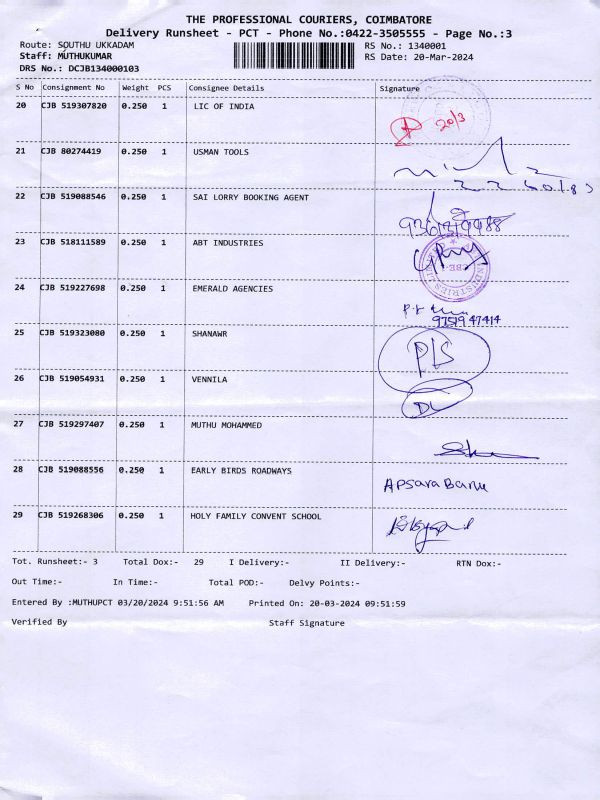 THE PROFESSIONAL COURIERS, COIMBATORE
Delivery Runsheet - PCT - Phone No.:0422-3505555 - Page No.:3
Route: SOUTHU UKKADAM RS No.: 1340001
Staff: MUTHUKUMAR RS Date: 20-Mar-2024
DRS No.: DCJB134000103
S No Consignment No Weight PCS Consignee Details Signature
20 CJB 519307820 0.250 1 LIC OF INDIA
20/3
21 CJB 80274419 0.250 1 USMAN TOOLS
22 CJB 519088546 0.250 1 SAI LORRY BOOKING AGENT
23 CJB 518111589 0.250 1 ABT INDUSTRIES
24 CJB 519227698 0.250 1 EMERALD AGENCIES
97519 47414
25 CJB 519323080 0.250 1 SHANAWR
26 CJB 519054931 0.250 1 VENNILA
27 CJB 519297407 0.250 1 MUTHU MOHAMMED
28 CJB 519088556 0.250 1 EARLY BIRDS ROADWAYS
Apsara Banu
29 CJB 519268306 0.250 1 HOLY FAMILY CONVENT SCHOOL
Tot. Runsheet:- 3 Total Dox:- 29 I Delivery:- II Delivery:- RTN Dox:-
Out Time:- In Time:- Total POD:- Delvy Points:-
Entered By :MUTHUPCT 03/20/2024 9:51:56 AM Printed On: 20-03-2024 09:51:59
Verified By Staff Signature